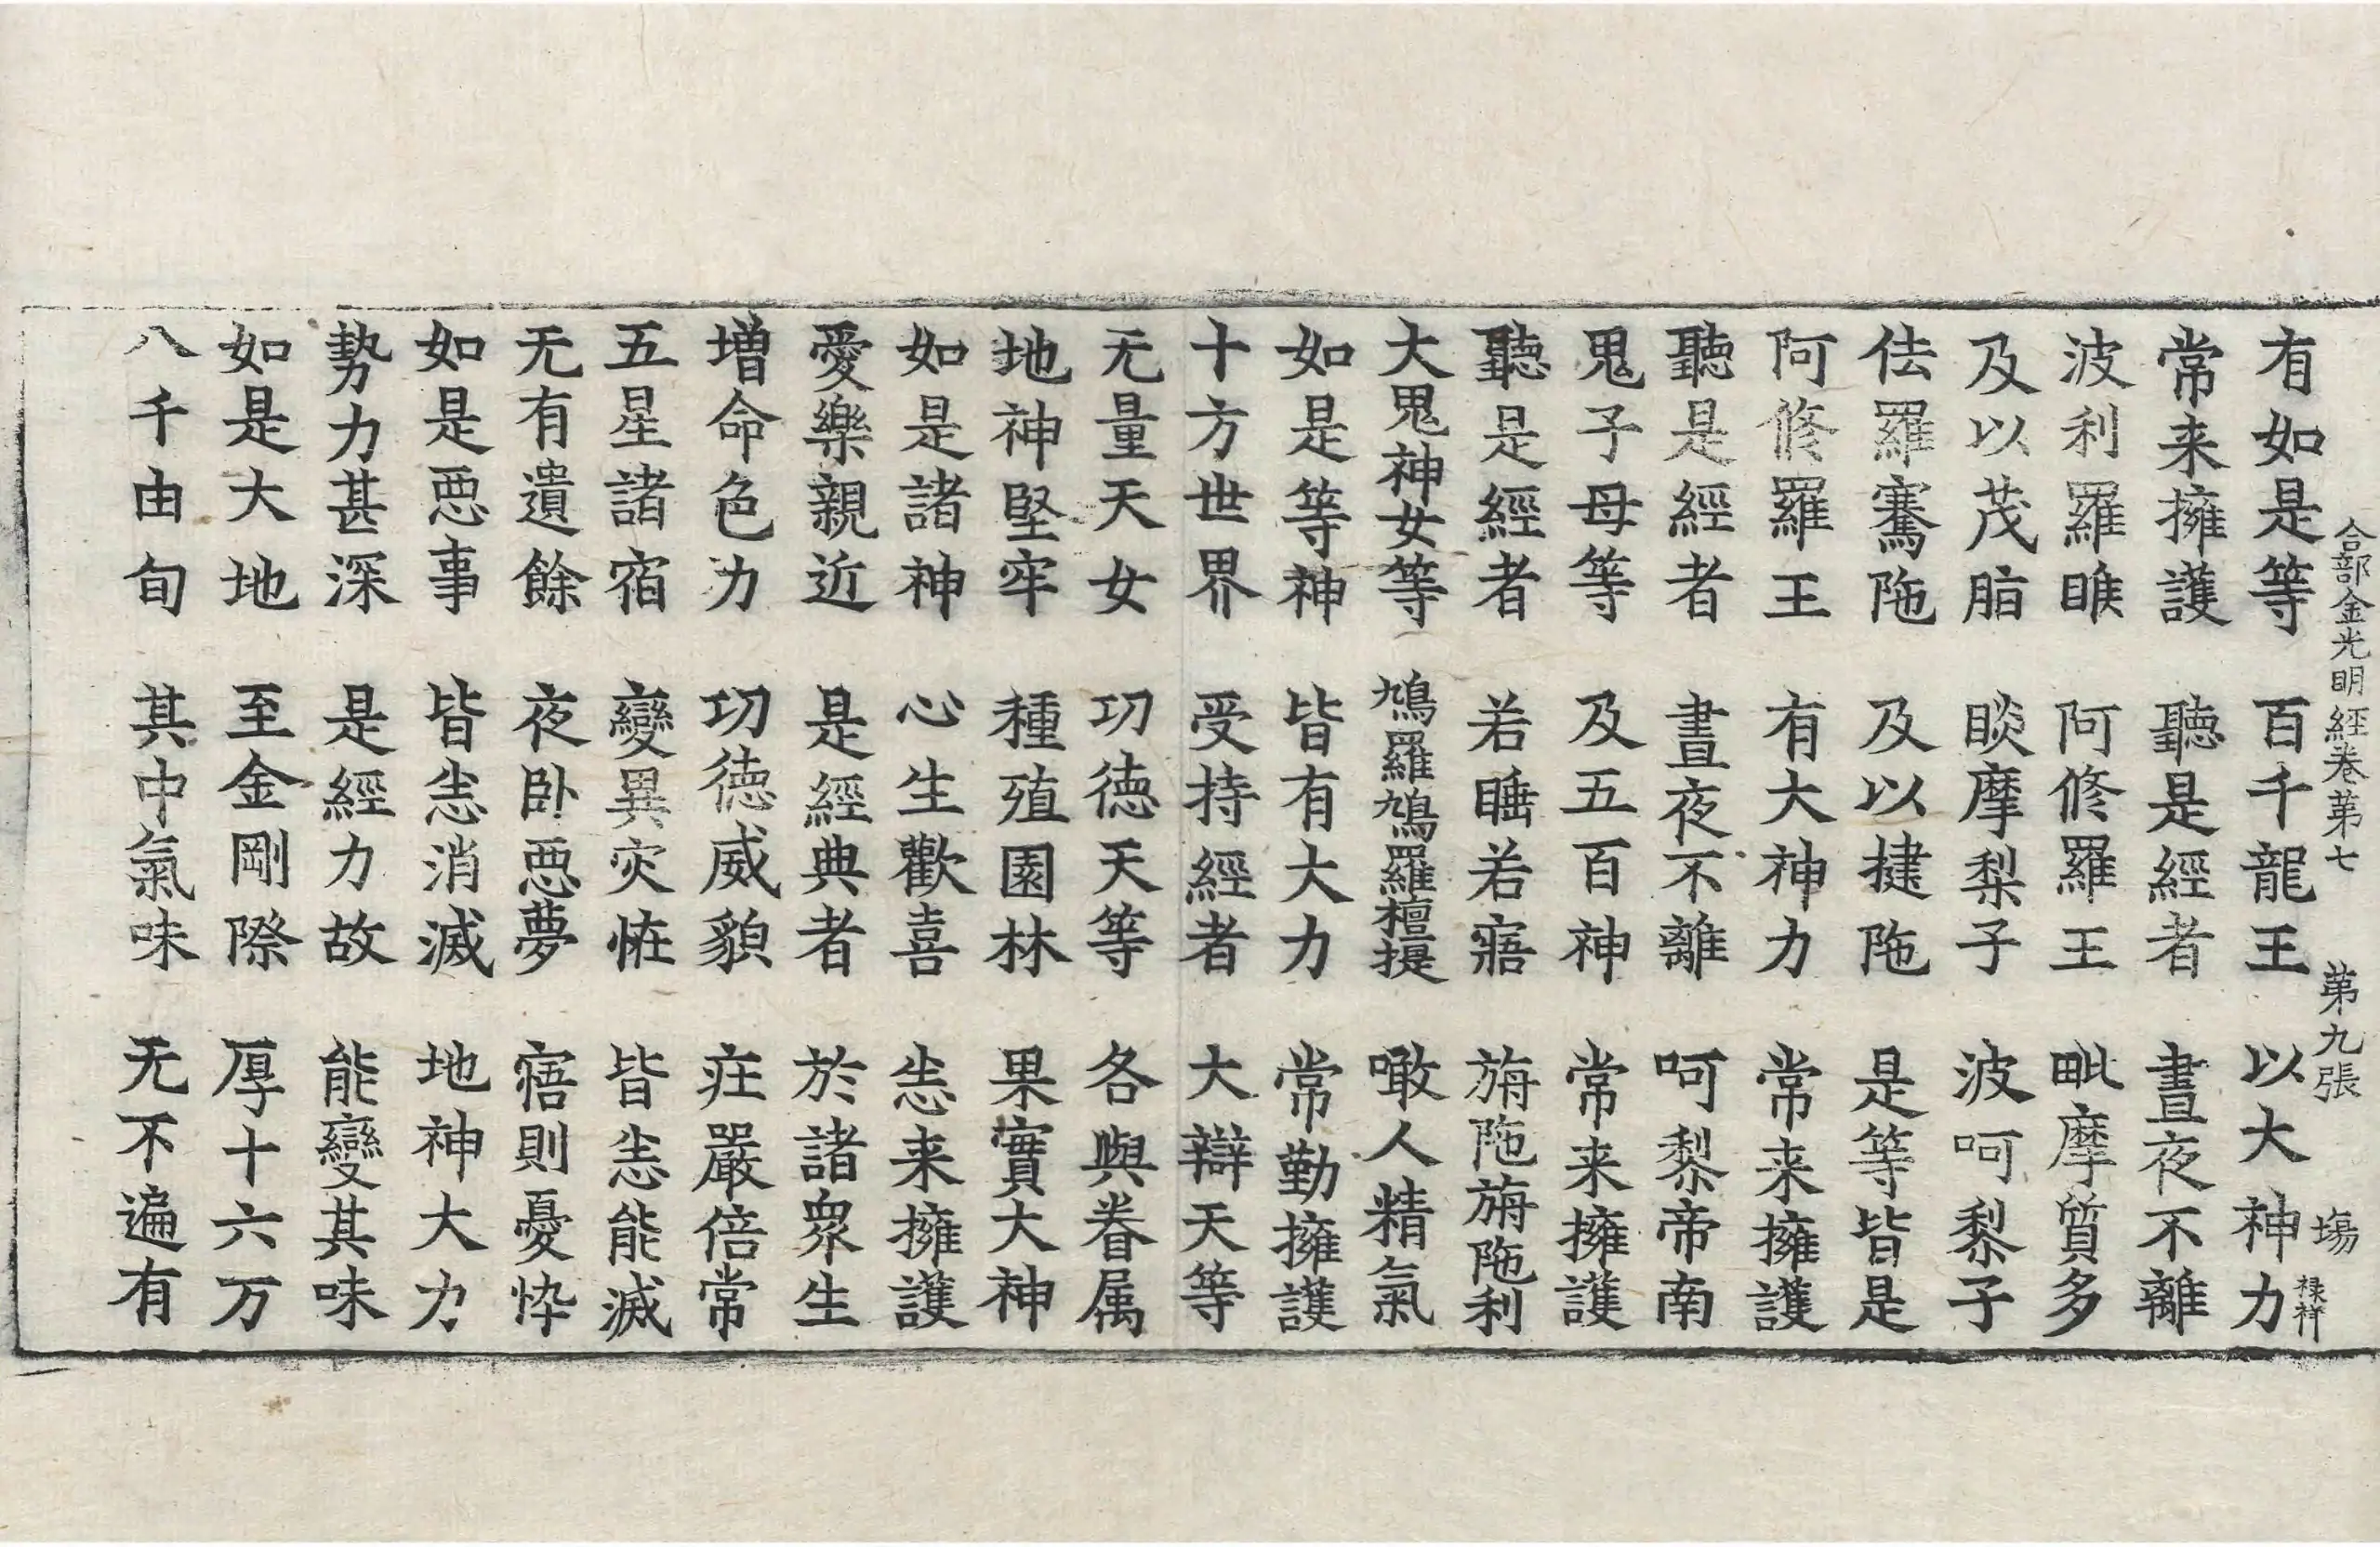 合部金光明經卷第七 第九張 塲 祿祥
有如是等 百千龍王 以大神力
常来擁護 聽是經者 晝夜不離
波利羅睺 阿修羅王 毗摩質多
及以茂脂 睒摩梨子 波呵梨子
佉羅騫陁 及以揵陁 是等皆是
阿修羅王 有大神力 常来擁護
聽是經者 晝夜不離 呵黎帝南
鬼子母等 及五百神 常来擁護
聽是經者 若睡若寤 旃陁旃陁利
大鬼神女等 鳩羅鳩羅檀提 噉人精氣
如是等神 皆有大力 常勤擁護
十方世界 受持經者 大辯天等
无量天女 功德天等 各與眷属
地神堅牢 種殖園林 果實大神
如是諸神 心生歡喜 悉来擁護
愛樂親近 是經典者 於諸衆生
增命色力 功德威貌 㽵嚴倍常
五星諸宿 變異灾恠 皆悉能滅
无有遺餘 夜卧惡夢 寤則憂悴
如是惡事 皆悉消滅 地神大力
勢力甚深 是經力故 能變其味
如是大地 至金剛際 厚十六万
八千由旬 其中氣味 无不遍有